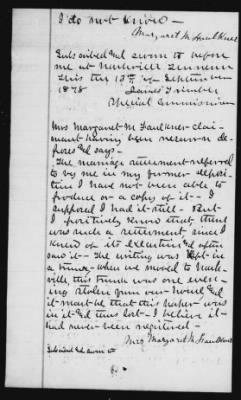 I do not know —
Margaret M. Faulkner
Subscribed and sworn to before
me at Nashville Tennessee
this the 13th of September
1878
James Trimble
Special Commissioner
Mrs Margaret M. Faulkner claimant
having been resworn deposes
and says —
The marriage settlement referred
to by me in my former deposition
I have not been able to
produce or a copy of it — I
supposed I had it still — But
I positively know that there
was such a settlement since I
knew of its execution and often
saw it — The writing was kept in
a trunk — when we moved to Nashville,
this trunk was one evening
stolen from our house and
it must be that this paper was
in it and thus lost — I believe it
had never been registered —
Mrs Margaret M. Faulkner
Subscribed and sworn to